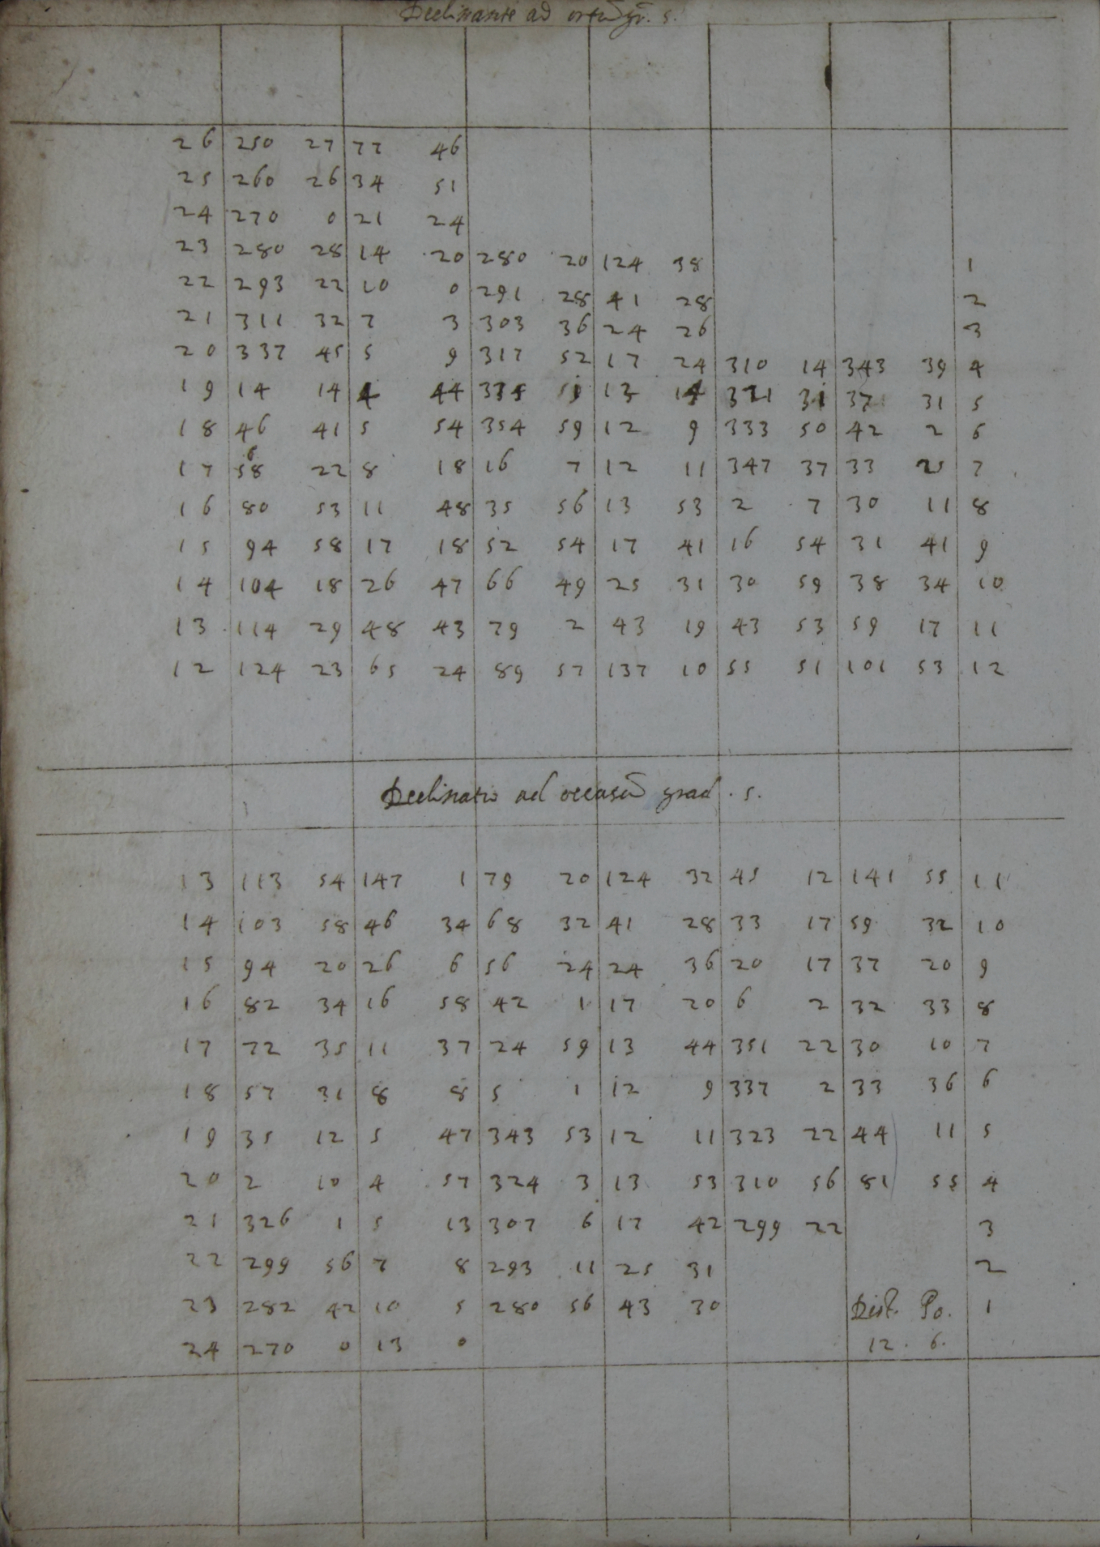 Declinante ad ortũ gr. 5.
26 250 27 77 46
25 260 26 34 51
24 270 0 21 24
23 280 28 14 20 280 20 124 38 1
22 293 22 10 0 291 28 41 28 2
21 311 32 7 3 303 36 24 26 3
20 337 45 5 9 317 52 17 24 310 14 343 39 4
19 14 14 4 44 335 13 14 321 31 37 31 5
18 46 41 5 54 354 59 12 9 333 50 42 2 6
17 22 8 18 16 7 12 11 347 37 33 7
16 80 53 11 48 35 56 13 53 2 7 30 11 8
15 94 58 17 18 52 54 17 41 16 54 31 41 9
14 104 18 26 47 66 49 25 31 30 59 38 34 10
13 114 29 48 43 79 2 43 19 43 53 59 17 11
12 124 23 65 24 89 57 137 10 55 51 101 53 12
Declinatio ad occasũ grad. 5.
13 113 54 147 1 79 20 124 32 45 12 141 55 11
14 103 58 46 34 68 32 41 28 33 17 59 32 10
15 94 20 26 6 56 24 24 36 20 17 37 20 9
16 82 34 16 58 42 1 17 20 6 2 32 33 8
17 72 35 11 37 24 59 13 44 351 22 30 10 7
18 57 31 8 8 5 1 12 9 337 2 33 36 6
19 35 12 5 47 343 53 12 11 323 22 44 11 5
20 2 10 4 57 324 3 13 53 310 56 81 55 4
21 326 1 5 13 307 6 17 42 299 22 3
22 299 56 7 8 293 11 25 31 2
23 282 42 10 5 280 56 43 30 Dist. Po. 1
24 270 0 13 0 12. 6.